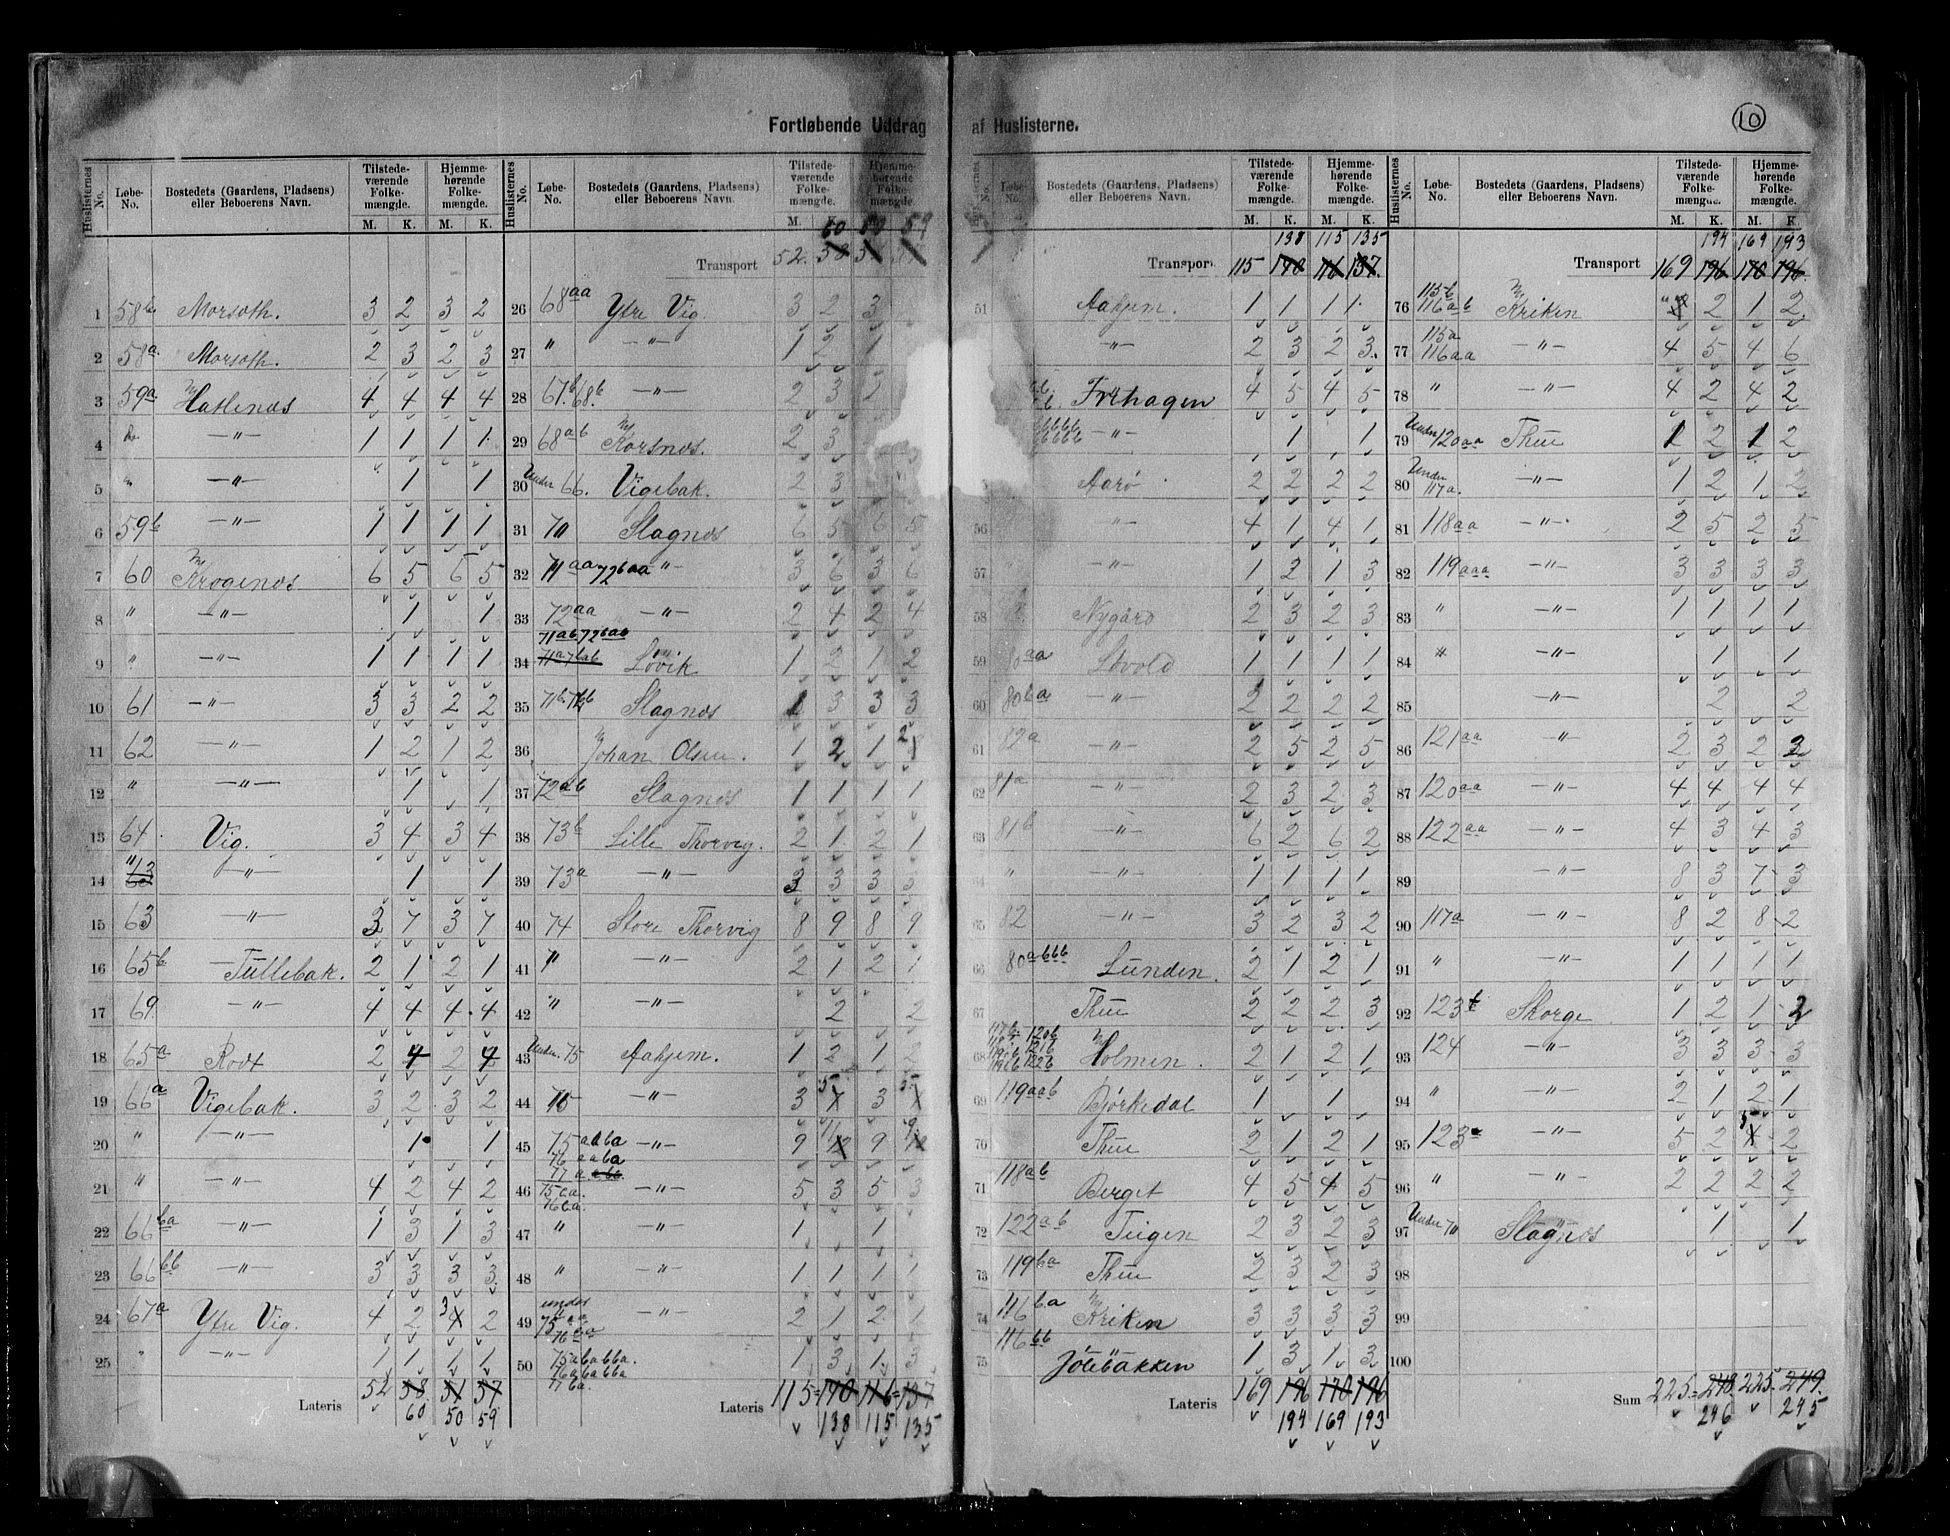 10
Fortløbende Uddrag af Huslisterne.
Huslisternes No. Løbe-No. Bostedets (Gaardens, Pladsens) eller Beboerens Navn. Tilstedeværende Folkemængde. M. K. Hjemmehørende Folkemængde. M. K.
1 58b Morsoth. 3 2 3 2
2 58a Morsoth. 2 3 2 3
3 59a Haslenæs 4 4 4 4
4 do —"— 1 1 1 1
5 " —"— 1 1
6 59b —"— 1 1 1 1
7 60 Krogenæs 6 5 6 5
8 " —"— 1 1
9 " —"— 1 1 1 1
10 61 —"— 3 3 2 2
11 62 —"— 1 2 1 2
12 " —"— 1 1
13 64 Vig. 3 4 3 4
14 —"— 1 1
15 63 —"— 3 7 3 7
16 65b Tullebak. 2 1 2 1
17 69 —"— 4 4 4 4
18 65a Rodt 2 4 2 4
19 66a Vigebak. 3 2 3 2
20 " —"— 1 1
21 " —"— 4 2 4 2
22 66ba —"— 1 3 1 3
23 66bb —"— 3 3 3 3
24 67a Ytre Vig. 4 2 3 2
25 " —"— 1 1 1 1
Lateris 52 58 51 57
60 50 59
Huslisternes No. Løbe-No. Bostedets (Gaardens, Pladsens) eller Beboerens Navn. Tilstedeværende Folkemængde. M. K. Hjemmehørende Folkemængde. M. K.
60 50 59
Transport 52. 58
26 68aa Ytre Vig. 3 2 3
27 " —"— 1 2 1
28 67b 68b —"— 2 3 2
29 68ab Korsnæs. 2 3
30 Under 66. Vigebak. 2 3
31 70 Slagnæs 6 5 6 5
32 71aa 72baa —"— 3 6 3 6
33 72aa —"— 2 4 2 4
71ab 72bab
34 Løvik 1 2 1 2
35 71b 71bb Slagnæs 1 3 3 3
36 Johan Olsen. 1 2 1 2
37 72ab Slagnæs 1 1 1 1
38 73b Lille Thorvig. 2 1 2 1
39 73a —"— 3 3 3 3
40 74 Store Thorvig 8 9 8 9
41 " —"— 2 1 2 1
42 " —"— 2 2
43 Under 75 Aahjem. 1 2 1 2
44 76 —"— 3 5 3 5
45 75aaba 76aaba —"— 9 11 9 9
46 77a 75ca. 76ba. —"— 5 3 5 3
47 " —"— 1 1
48 " —"— 1 1 1 1
49 under 75aa 76aa —"— 2 1 2 1
50 75ababba. 76ababba 77ba. 1 3 1 3
Lateris 115 140 116 137
138 115 135
Løbe-No. Bostedets (Gaardens, Pladsens) eller Beboerens Navn. Tilstedeværende Folkemængde. M. K. Hjemmehørende Folkemængde. M. K.
138 115 135
Transport 115 140 116 137.
51 Aahjem. 1 1 1 1
—"— 2 3 2 3
Frihagen 4 5 4 5
—"— 1 1
Aarø 2 2 2 2
56 —"— 4 1 4 1
57 —"— 1 2 1 3
58 Nygård 2 3 2 3
59 80aa Løvold 1 1 1 1
60 80ba —"— 2 2 2 2
61 82a —"— 2 5 2 5
62 81a —"— 2 3 2 3
63 81b —"— 6 2 6 2
64 " —"— 1 1 1 1
65 82 —"— 3 2 3 2
66 80abbb Lunden. 2 1 2 1
67 Thue 2 2 2 3
68 117b 120b 121b 122b Holmen. 2 1 2 1
69 119aab Bjørkedal 1 1
70 Thue 2 1 2 1
71 118ab Berget 4 5 4 5
72 122ab Teigen 2 3 2 3
73 119ba Thue 2 3 2 3
74 116ba Kriken 3 3 3 3
75 116bb Jølebakken 1 3 1 3
Lateris 169 196 170 196
194 169 193
Huslisternes No. Løbe-No. Bostedets (Gaardens, Pladsens) eller Beboerens Navn. Tilstedeværende Folkemængde. M. K. Hjemmehørende Folkemængde. M. K.
194 169 193
Transport 169 196 170 196
76 115b 116ab Kriken 2 1 2
77 115a 116aa —"— 4 5 4 6
78 " —"— 4 2 4 2
79 Under 120aa Thue 1 2 1 2
80 Under 117a. —"— 1 2 1 2
81 118aa —"— 2 5 2 5
82 119aaa —"— 3 3 3 3
83 " —"— 1 1 1 1
84 " —"— 1 1
85 —"— 2 2
86 121aa —"— 2 3 2 3
87 120aa —"— 4 4 4 4
88 122aa —"— 4 3 4 3
89 —"— 8 3 7 3
90 117a —"— 8 2 8 2
91 " —"— 1 1 1 1
92 123b Skorge 1 2 1 2
93 124 —"— 3 3 3 3
94 " —"— 2 1 2 1
95 123a —"— 5 2 5 2
96 " —"— 2 2 2 2
97 Under 70 Slagnæs 1 1
98
99
100
Sum 225 248 225 249.
246 245